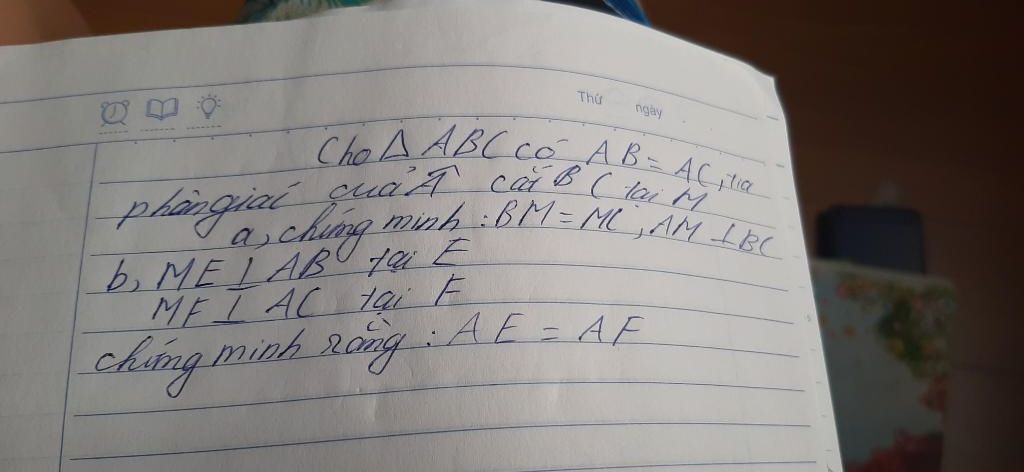 Thứ ngày
Cho Δ ABC có AB = AC, tia
phân giác của Â cắt BC tại M
a, chứng minh : BM = MC, AM ⊥ BC
b, ME ⊥ AB tại E
MF ⊥ AC tại F
chứng minh rằng : AE = AF